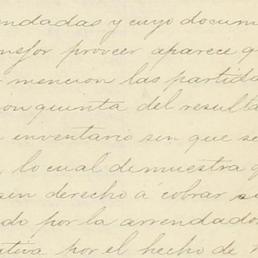 endadas y cuyo docum
nsfor proveer aparece q
r mencion las partida
on quinta del resulta
inventario sin que se
, lo cual demuestra q
sin derecho á cobrar s
do por la arrendado
ativa por el hecho de n